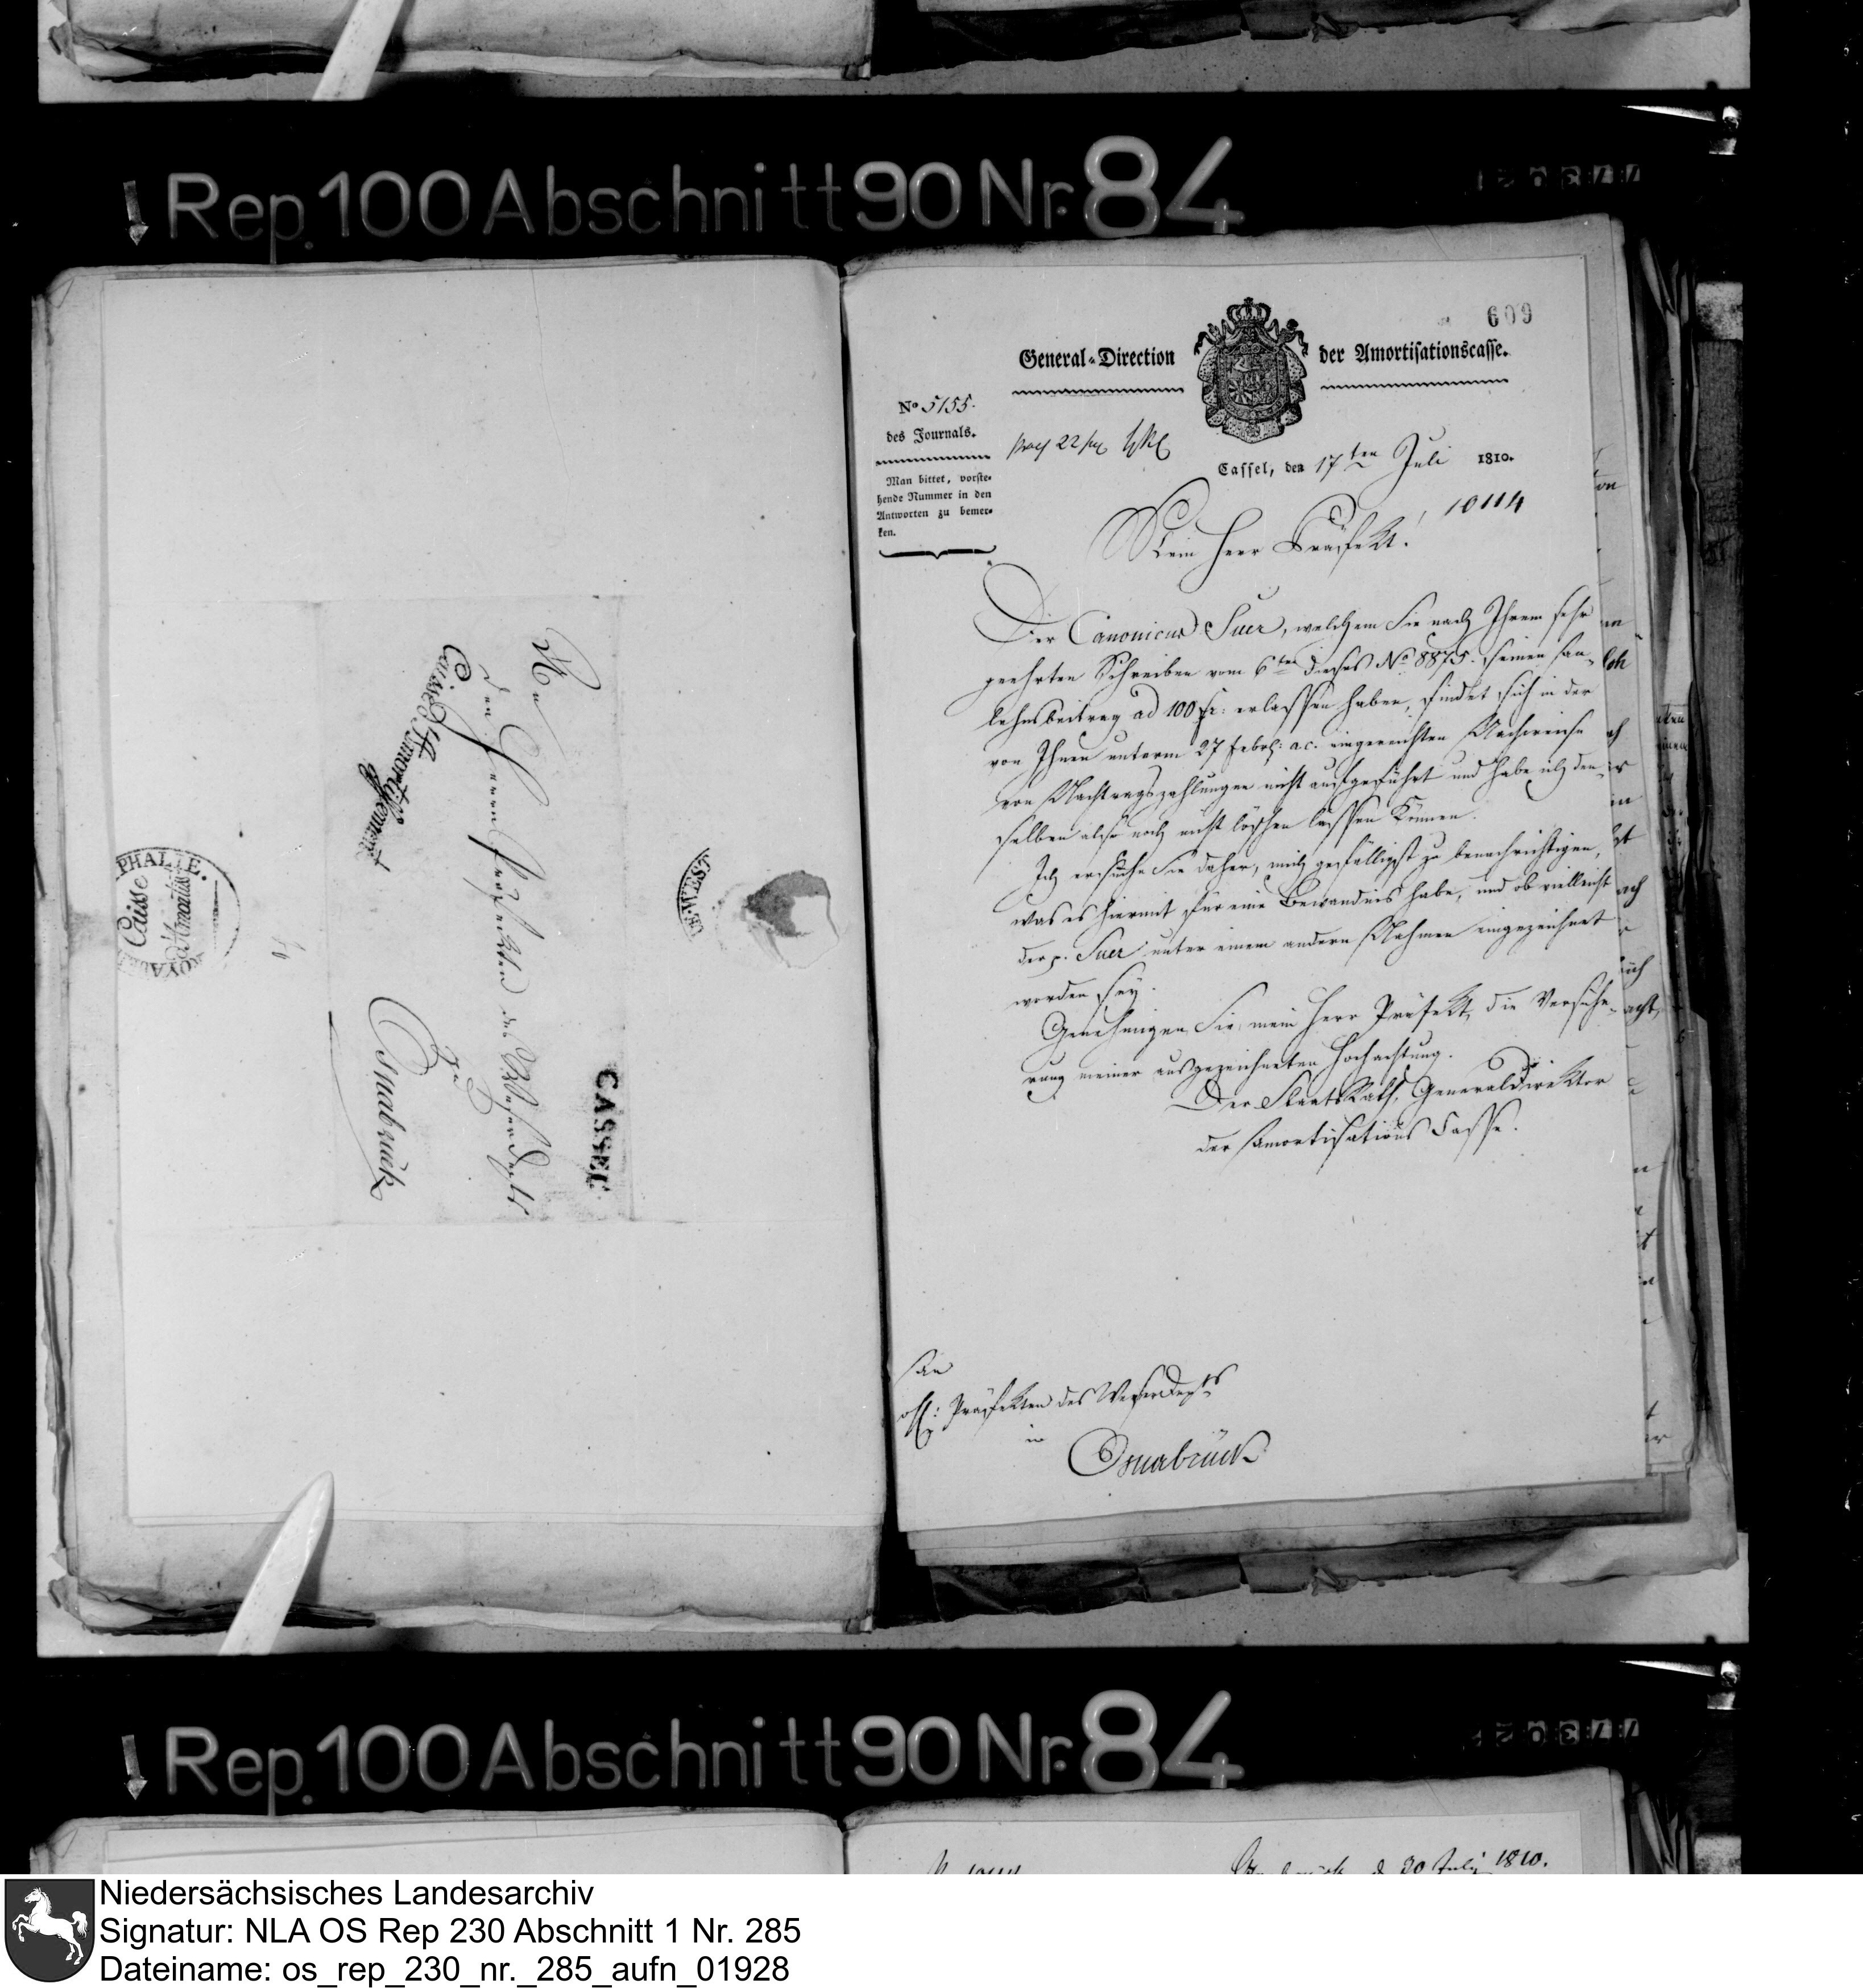 Rep. 100 Abschnitt 90 Nr. 84
An
den Herrn Präfekten des Weserdepts
zu
Osnabrück
Caisse d'Amortiss
CASSEL
PHALIE.
Caisse
d'Amortiss
DE WEST
609
General-Direction der Amortisationscasse.
No 5155.
des Journals.
Man bittet, vorste-
hende Nummer in den
Antworten zu bemer-
ken.
Cassel, den 17ten Juli 1810.
10114
Mein Herr Präfekt!
Der Canonicus Suer, welchem Sie nach Ihrem sehr
geehrten Schreiben vom 6ten dieses No 8875. seinen An-
lehnsbeitrag ad 100 fr: erlassen haben, findet sich in der
von Ihnen unterm 27 Febr: a.c. eingereichten Nachweise
von Nachtragszahlungen nicht aufgeführt und habe ich den-
selben also noch nicht löschen lassen können.
Ich ersuche Sie daher, mich gefälligst zu benachrichtigen,
was es hiermit für eine Bewandnis habe, und ob vielleicht
der p. Suer unter einem andern Nahmen eingezeichnet
worden sey.
Genehmigen Sie, mein Herr Präfekt, die Versiche-
rung meiner ausgezeichneten Hochachtung.
Der StaatsRath, GeneralDirektor
der Amortisations Casse.
An
H: Präfekten des WeserDepts
in
Osnabrück
Rep. 100 Abschnitt 90 Nr. 84
30 July 1810.
Niedersächsisches Landesarchiv
Signatur: NLA OS Rep 230 Abschnitt 1 Nr. 285
Dateiname: os_rep_230_nr._285_aufn_01928